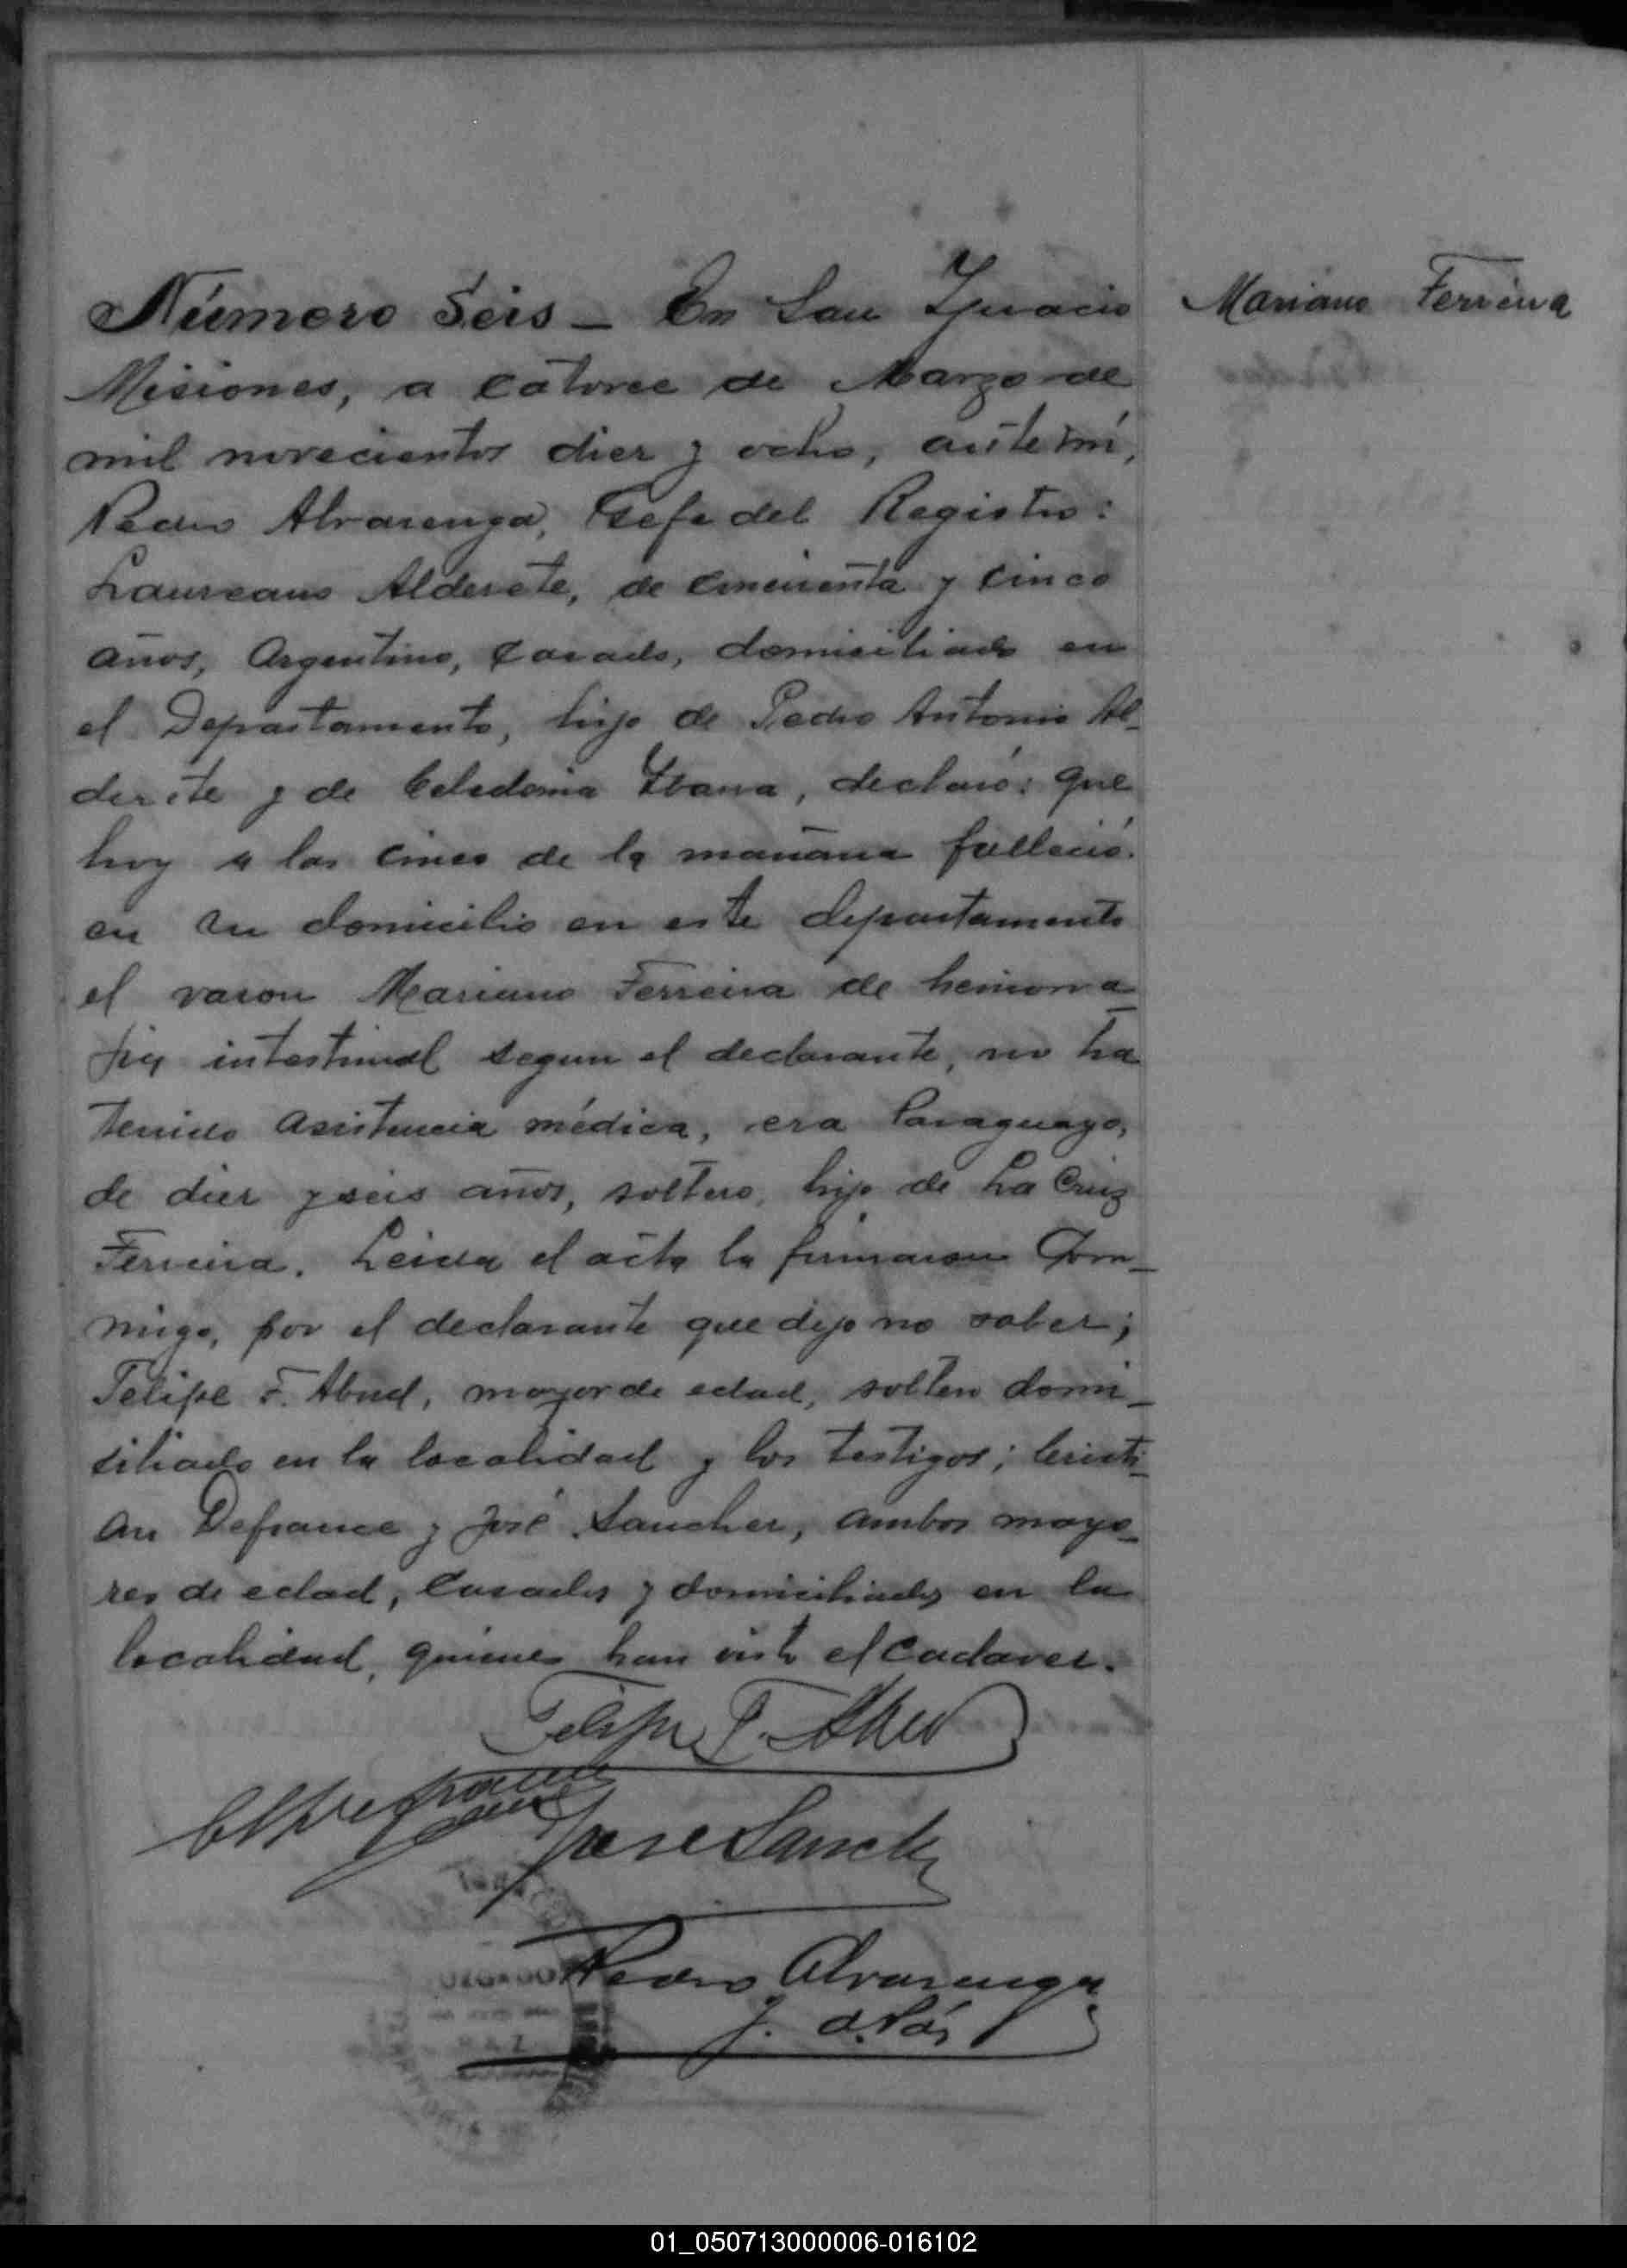 Número Seis — En San Ygnacio
Mariano Ferreira
Misiones, a catorce de Marzo de
mil novecientos diez y ocho, ante mí,
Pedro Alvarenga, Gefe del Registro:
Laureano Alderete, de cincuenta y cinco
años, Argentino, casado, domiciliado en
el Departamento, hijo de Pedro Antonio Al-
derete y de Celedonia, declaró: que
hoy a las cinco de la mañana falleció
en su domicilio en este departamento
el varon Mariano Ferreira de hemorra-
jia intestinal segun el declarante, no ha
tenido asistencia médica, era Paraguayo,
de diez y seis años, soltero, hijo de La Cruz
Ferreira. Leida el acta la firmaron Con-
migo, por el declarante que dijo no saber;
Felipe F. Abud, mayor de edad, soltero domi-
siliado en la localidad y los testigos; Cristi-
an Defrance y José Sanchez, ambos mayo-
res de edad, casados y domiciliados en la
localidad, quienes han visto el cadaver.
Felipe F. Abud
Jose Sanchez
Pedro Alvarenga
J. d. Páz
01_050713000006-016102